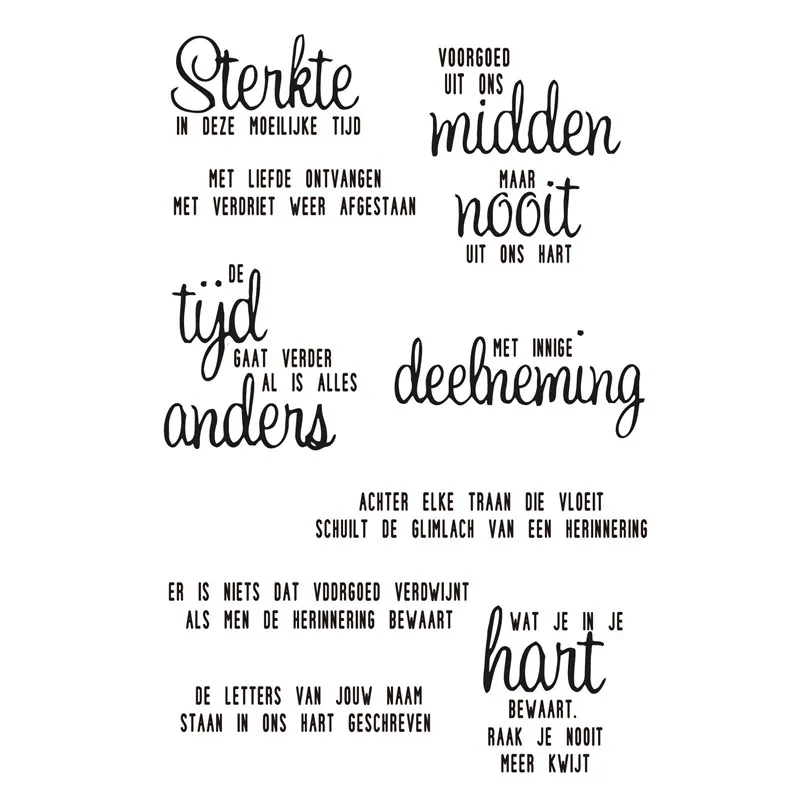 Sterkte
IN DEZE MOEILIJKE TIJD
VOORGOED
UIT ONS
midden
MAAR
nooit
UIT ONS HART
MET LIEFDE ONTVANGEN
MET VERDRIET WEER AFGESTAAN
DE
tijd
GAAT VERDER
AL IS ALLES
anders
MET INNIGE
deelneming
ACHTER ELKE TRAAN DIE VLOEIT
SCHUILT DE GLIMLACH VAN EEN HERINNERING
ER IS NIETS DAT VOORGOED VERDWIJNT
ALS MEN DE HERINNERING BEWAART
WAT JE IN JE
hart
BEWAART.
RAAK JE NOOIT
MEER KWIJT
DE LETTERS VAN JOUW NAAM
STAAN IN ONS HART GESCHREVEN